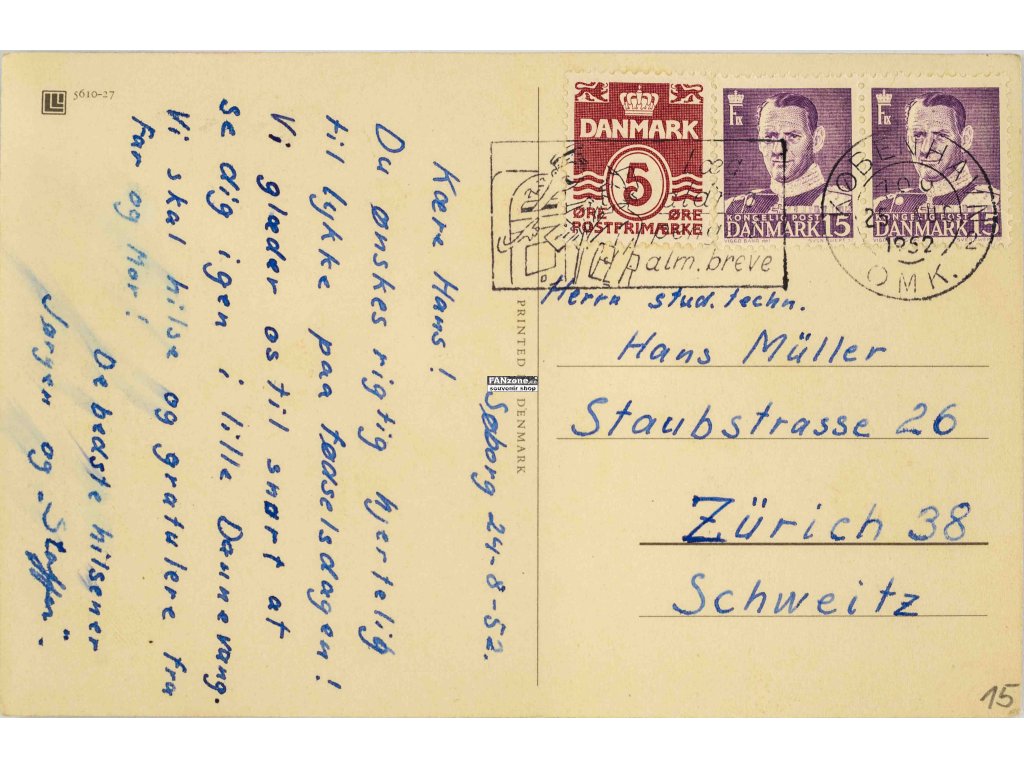 5610-27
Søborg 24-8-52.
Kære Hans!
Du ønskes rigtig hjertelig
til lykke paa fødselsdagen!
Vi glæder os til snart at
se dig igen i lille Dannevang.
Vi skal hilse og gratulere fra
Far og Mor!
De bedste hilsener
Jørgen og "Steffen".
PRINTED DENMARK
FANzone
souvenir shop
DANMARK
5
ØRE ØRE
POSTFRIMÆRKE
F IX
KONGELIG POST
DANMARK 15
F IX
KONGELIG POST
DANMARK 15
alm. breve
KØBENHAVN
25
1952
OMK.
Herrn stud. techn.
Hans Müller
Staubstrasse 26
Zürich 38
Schweitz
15